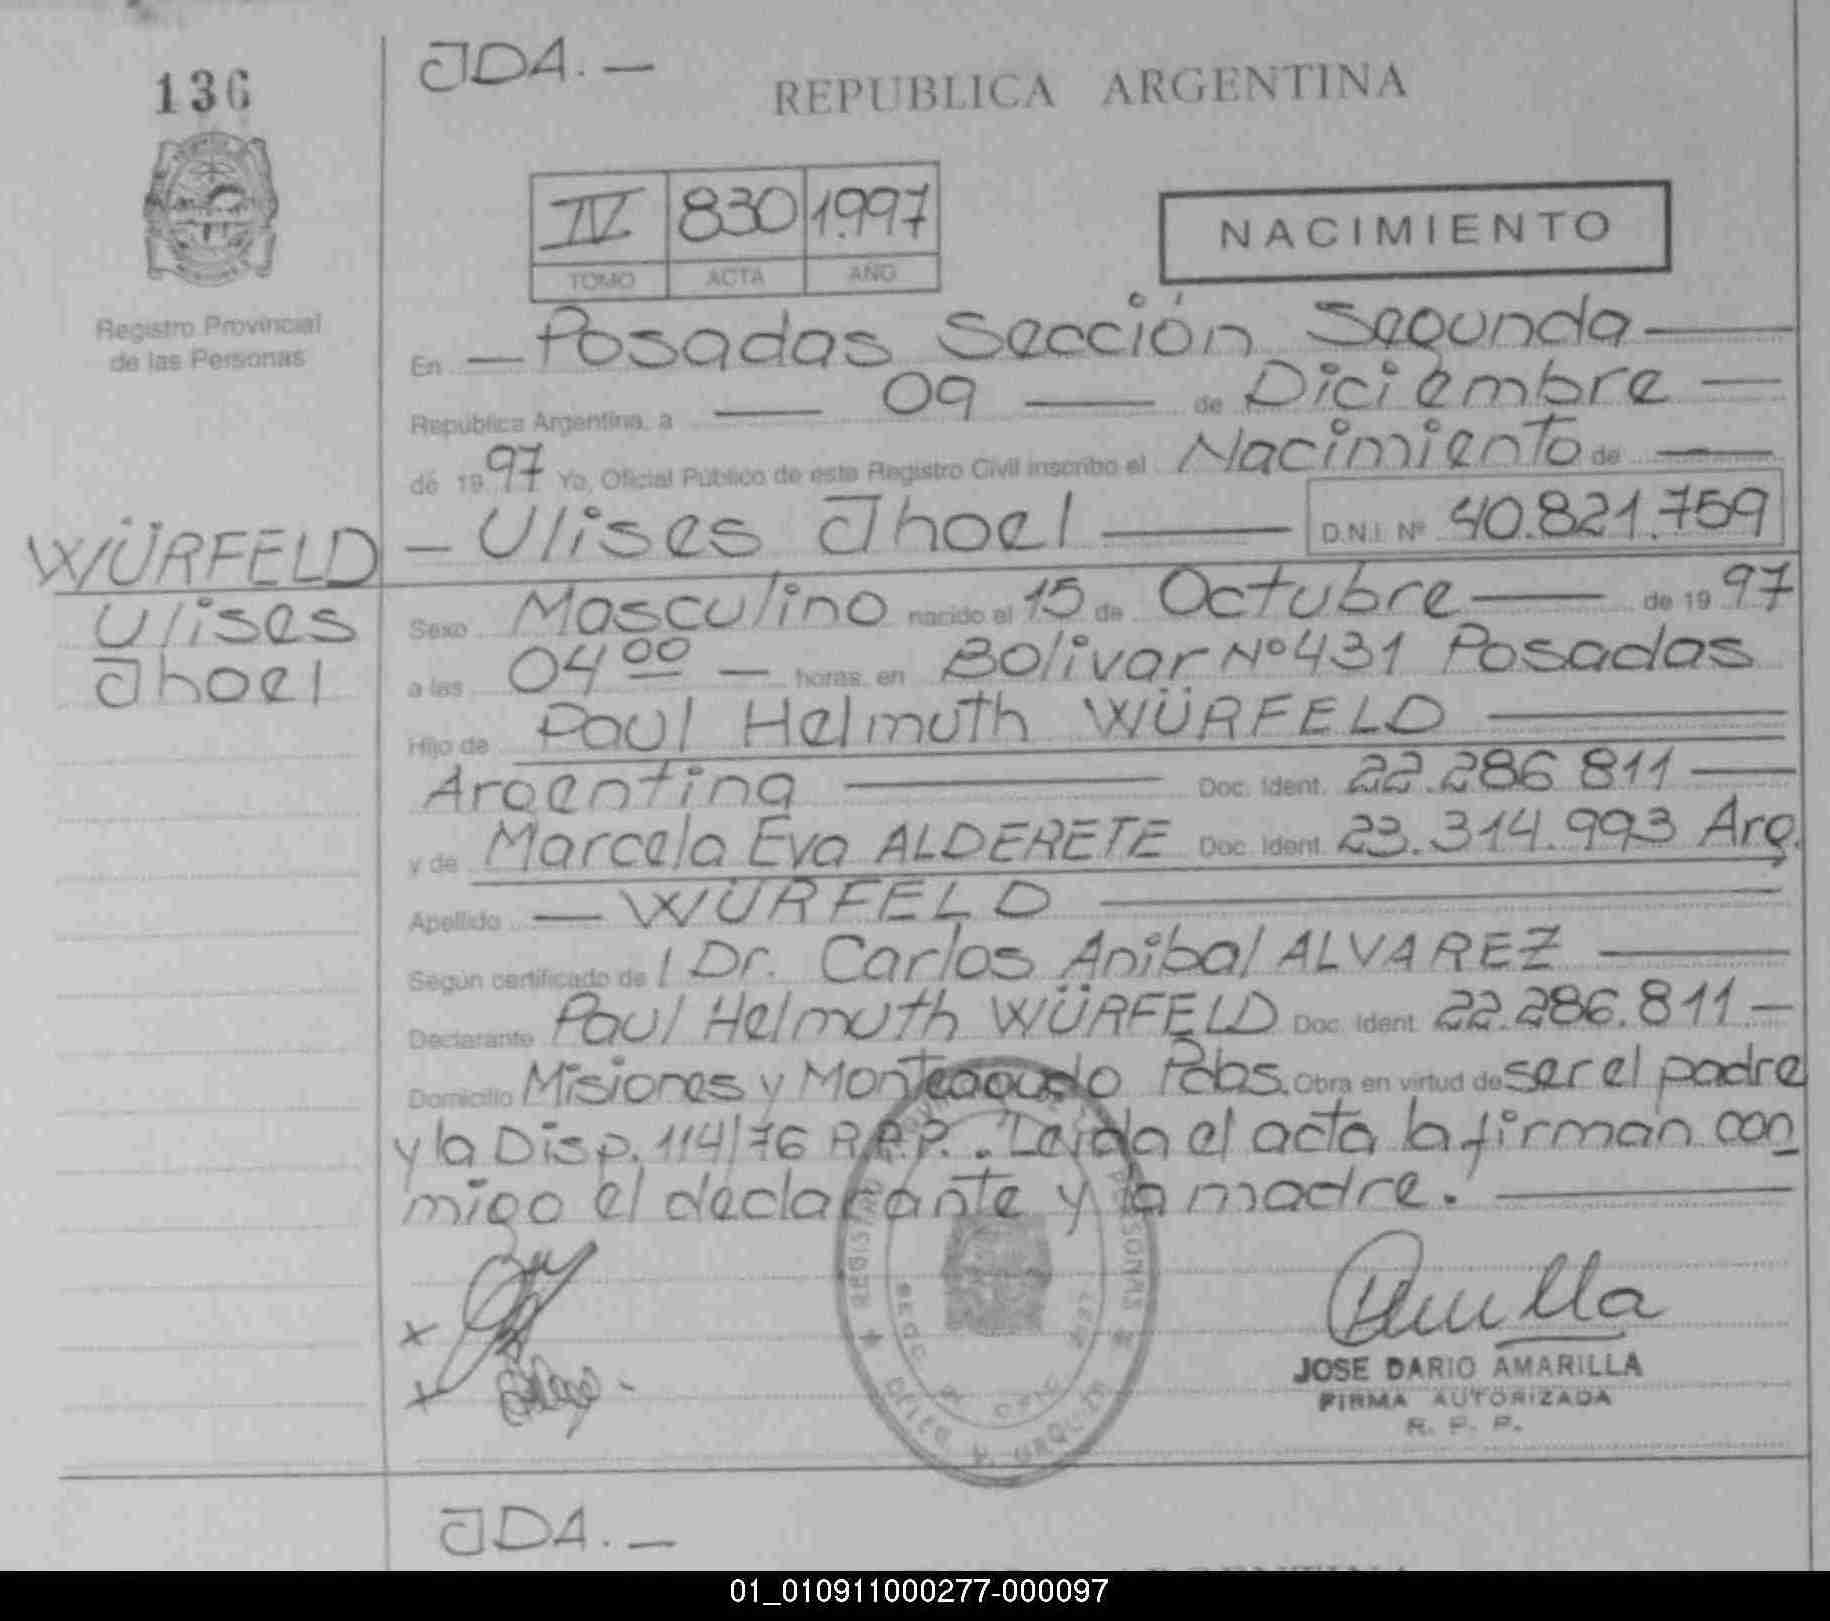 136
JDA. —
REPUBLICA ARGENTINA
IV 830 1.997
TOMO ACTA AÑO
NACIMIENTO
Registro Provincial
de las Personas
En — Posadas Sección Segunda —
República Argentina, a — 09 — de Diciembre —
de 1997 Yo, Oficial Público de este Registro Civil inscribo el Nacimiento de —
— Ulises Jhoel — D.N.I. Nº 40.821.759
WÜRFELD
Ulises
Jhoel
Sexo Masculino nacido el 15 de Octubre — de 1997
a las 04 00 — horas, en Bolivar Nº 431 Posadas
Hijo de Paul Helmuth WÜRFELD —
Argentina — Doc. Ident. 22.286.811 —
y de Marcela Eva ALDERETE Doc. Ident. 23.314.993 Arg.
Apellido — WÜRFELD —
Según certificado de / Dr. Carlos Anibal ALVAREZ —
Declarante Paul Helmuth WÜRFELD Doc. Ident. 22.286.811 —
Domicilio Misiones y Monteagudo Pdas. Obra en virtud de ser el padre
y la Disp. 114/76 R.P.P.. Leida el acta la firman con
migo el declarante y la madre. —
REGISTRO PERSONAS
JOSE DARIO AMARILLA
FIRMA AUTORIZADA
R. P. P.
JDA. —
01_010911000277-000097